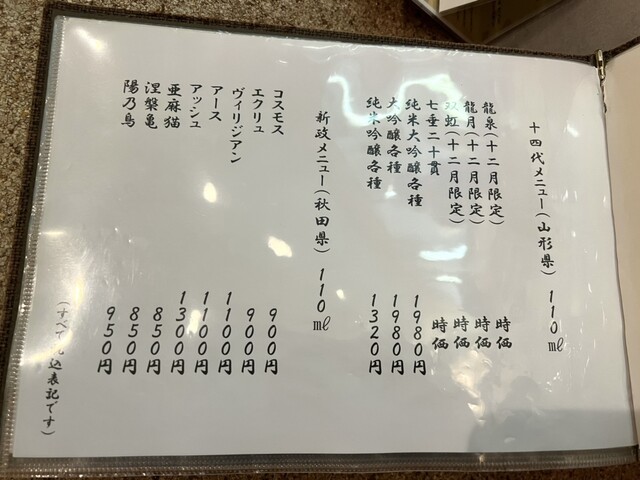 十四代メニュー(山形県) 110㎖
龍泉(十二月限定) 時価
龍月(十二月限定) 時価
双虹(十二月限定) 時価
七垂二十貫 時価
純米大吟醸各種 1980円
大吟醸各種 1980円
純米吟醸各種 1320円
新政メニュー(秋田県) 110㎖
コスモス 900円
エクリュ 900円
ヴィリジアン 1100円
アース 1100円
アッシュ 1300円
亜麻猫 850円
涅槃亀 850円
陽乃鳥 950円
(すべて税込表記です)